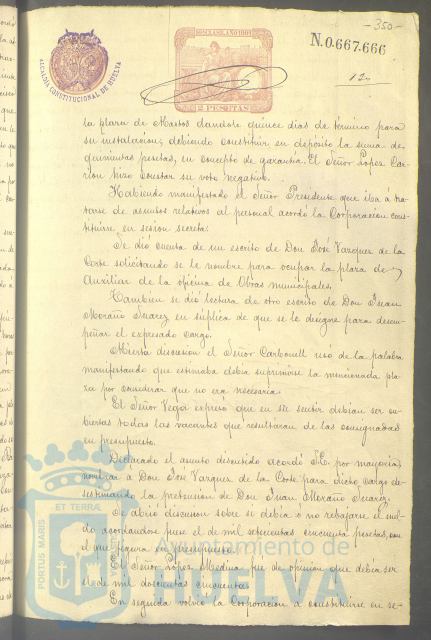 - 350 -
N.0.667.666
ALCALDÍA CONSTITUCIONAL DE HUELVA
AÑO 1901
2 PESETAS
la plaza de Mastos dandole quince dias de término para
su instalacion; debiendo constituir en depósito la suma de
quinientas pesetas, en concepto de garantía. El Señor Lopez Car-
rion hizo constar su voto negativo.
Habiendo manifestado el Señor Presidente que iba á tra-
tarse de asuntos relativos al personal acordó la Corporacion cons-
tituirse en sesion secreta.
Se dió cuenta de un escrito de Don José Vazquez de la
Corte solicitando se le nombre para ocupar la plaza de
Auxiliar de la oficina de Obras municipales.
Tambien se dió lectura de otro escrito de Don Juan
Moraño Suarez en súplica de que se le designe para desem-
peñar el expresado cargo.
Abierta discusion el Señor Carbonell usó de la palabra
manifestando que estimaba debia suprimirse la mencionada pla-
za por considerar que no era necesaria.
El Señor Vega expresó que en su sentir debian ser cu-
biertas todas las vacantes que resultaran de las consignadas
en presupuesto.
Declarado el asunto discutido acordó S.E. por mayoria
nombrar á Don José Vazquez de la Corte para dicho cargo de-
sestimando la pretension de Don Juan Moraño Suarez.
Se abrió discusion sobre si debia ó no rebajarse el suel-
do acordandose fuese el de mil setecientas cincuenta pesetas, con
el que figura en presupuesto.
El Señor Lopez Medina fué de opinion que debia ser
el de mil doscientas cincuenta.
En seguida volvió la Corporacion á constituirse en se-
PORTUS MARIS ET TERRAE CUSTODIA
Ayuntamiento de
HUELVA